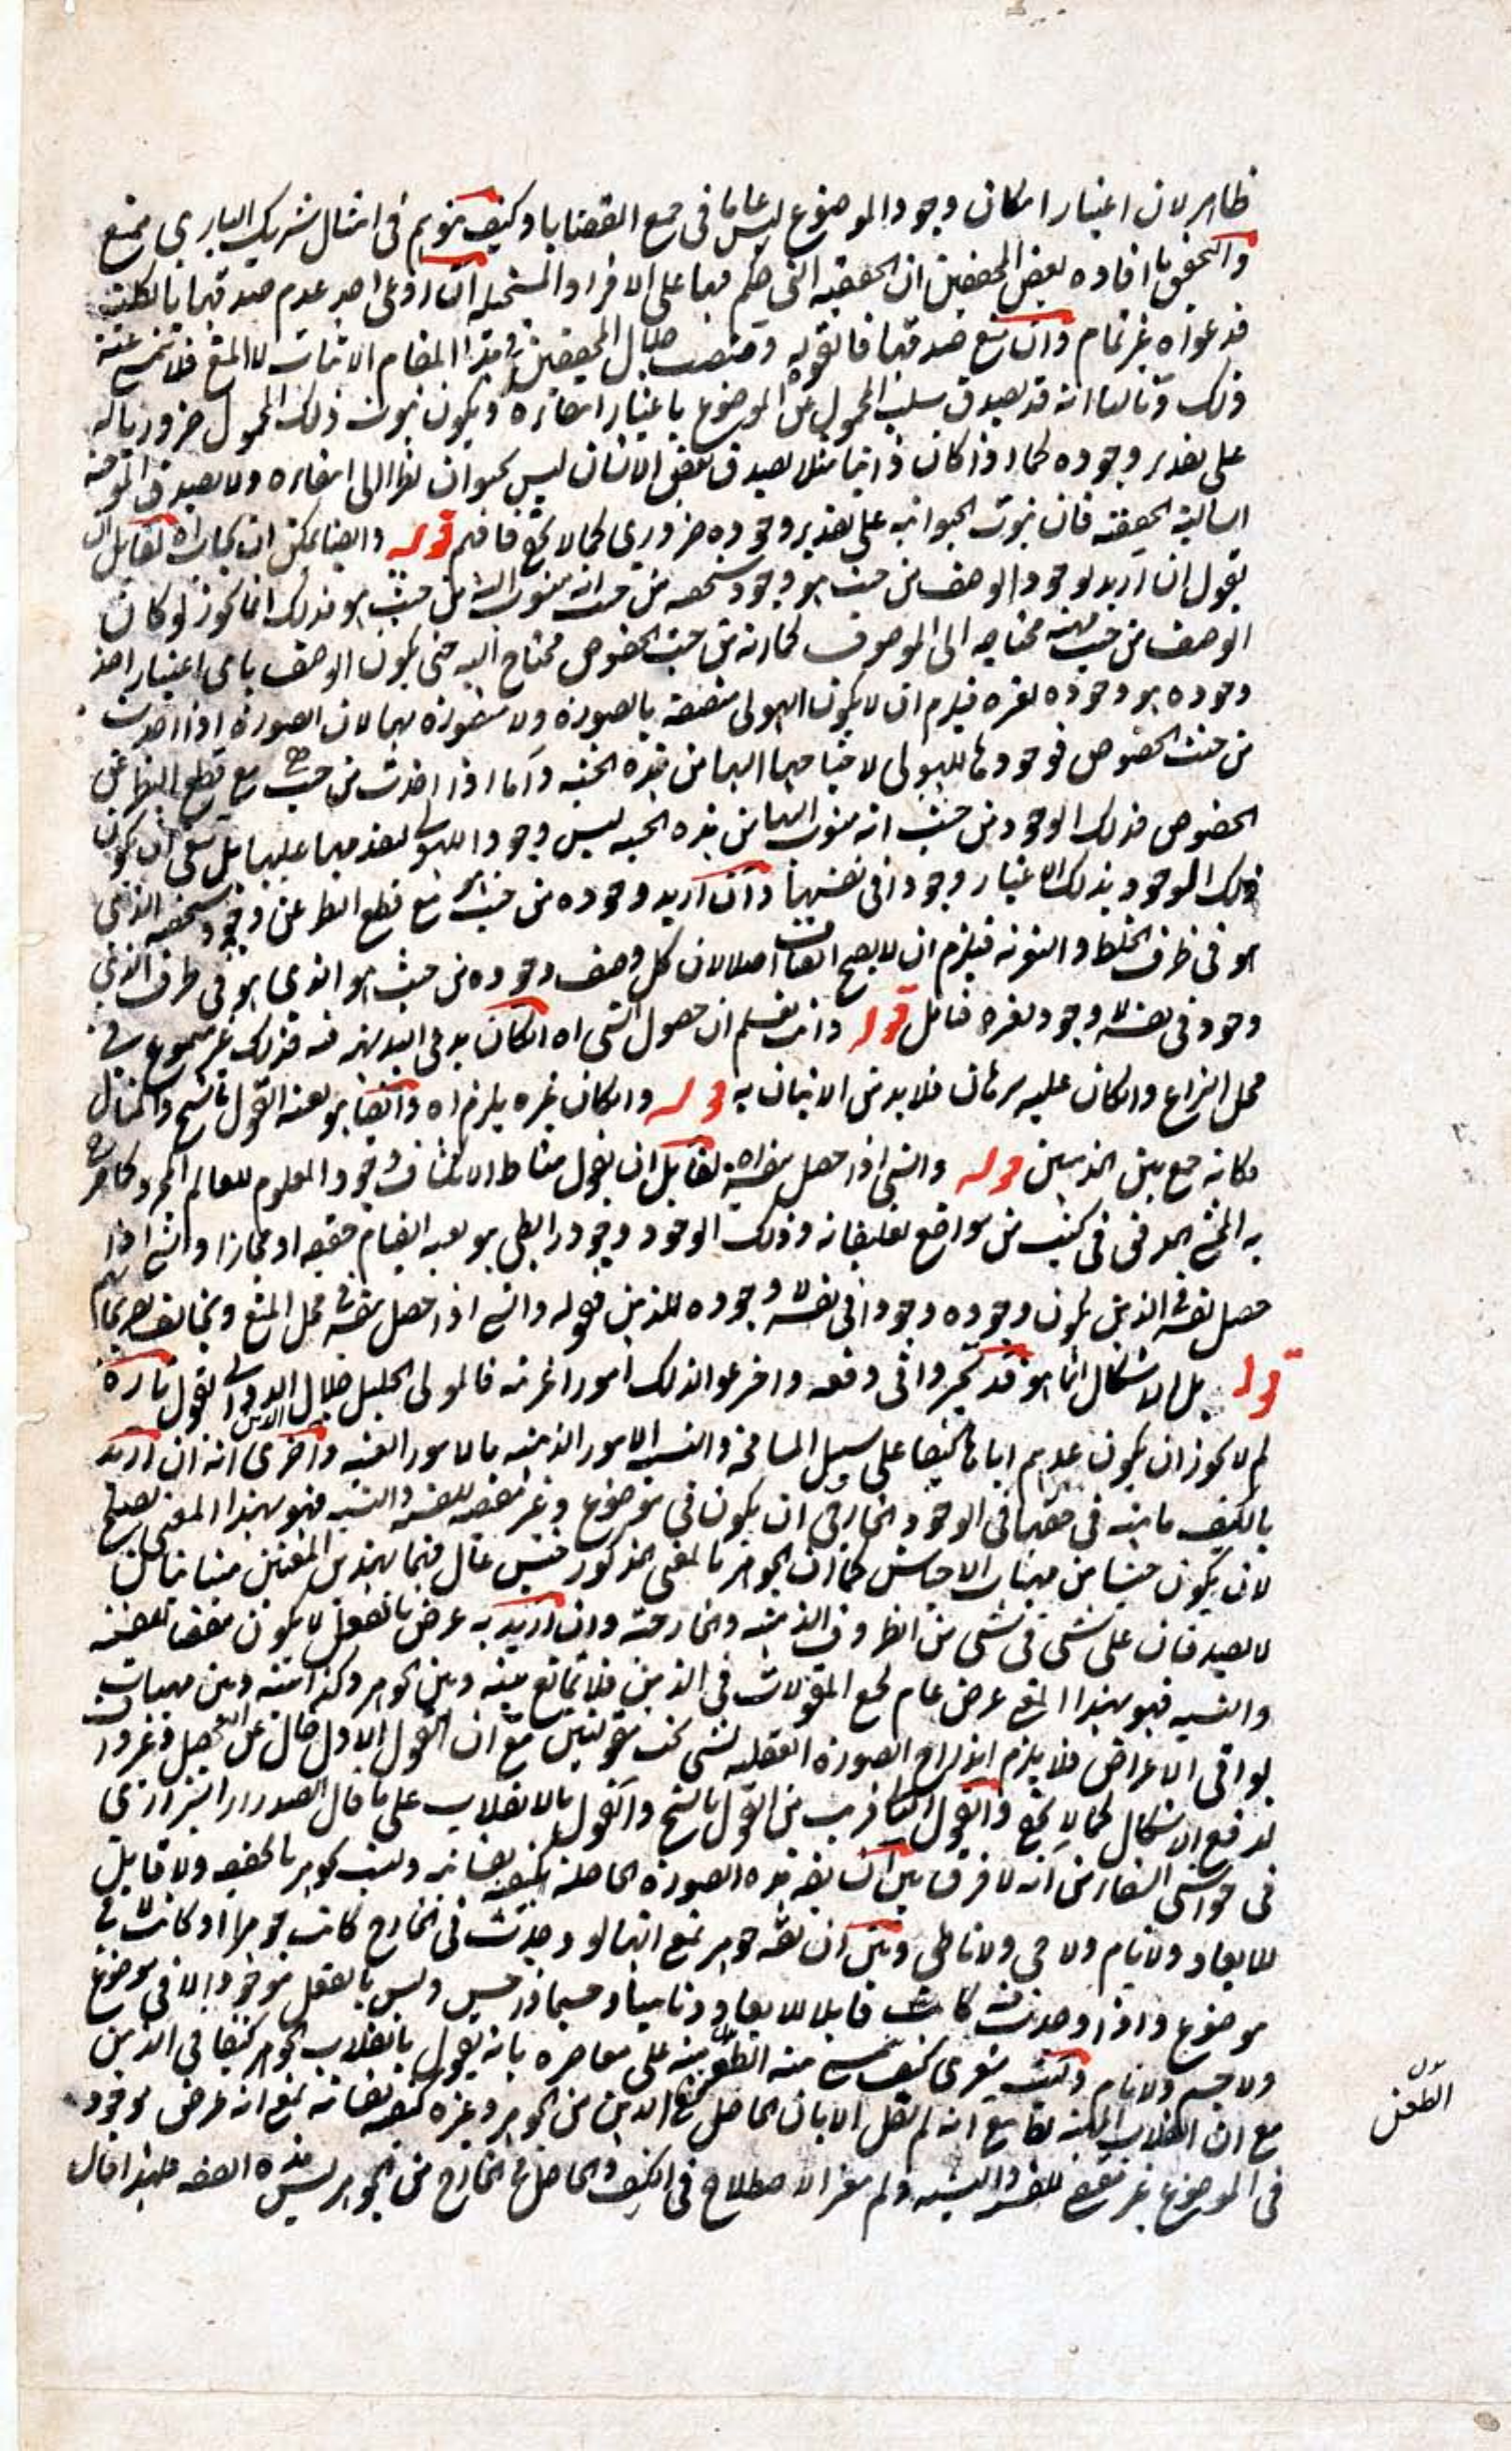 ظاهر لان اعتبار امكان وجود الموضوع ليس عاما فى جميع القضايا وكيف يتوهم فى امثال شريك البارى ممتنع
والتحقيق ما افاده بعض المحققين ان الحقيقية التى حكم فيها على الافراد المستحيلة ان ادعى احد عدم صدقها بالكلية
فدعواه غير تمام وان منع صدقها فالقول به ومنصب امثال المحققين فى هذا المقام الاثبات لا المنع فلا
ذلك وثالثا انه قد يصدق سلب المحمول عن الموضوع باعتبار انتفائه ويكون ثبوت ذلك المحمول ضروريا له
على تقدير وجوده كما اذا كان ذاتيا مثلا يصدق بعض الانسان ليس بحيوان نظرا الى انتفائه ولا يصدق
السالبة الحقيقية فان ثبوت الحيوانية على تقدير وجوده ضرورى كما لا يخفى فافهم قوله وايضا يمكن ان يجاب اه لقائل ان
يقول ان اريد بوجود الوصف من حيث هو وجود شخصه من حيث انه منسوب اليه من حيث هو فذلك انما يجوز لو كان
الوصف من حيث هو محتاجا الى الموصوف كما انه من حيث الخصوص محتاج اليه حتى يكون الوصف باى اعتبار اخذ
وجوده هو وجوده لغيره فيلزم ان لا يكون الهيولى متصفة بالصورة ولا متصورة بها لان الصورة اذا اخذت
من حيث الخصوص فوجودها للهيولى لاحتياجها اليها من هذه الحيثية واما اذا اخذت من حيث هى مع قطع النظر عن
الخصوص فذلك الوجود من حيث انه منسوب اليها من هذه الحيثية ليس وجودا للهيولى لتقدمها عليها بل ينبغى ان يكون
ذلك الوجود بذلك الاعتبار وجودا فى نفسها وان اريد وجوده من حيث هو مع قطع النظر عن وجود شخصه الذى
هو فى ظرف الخلط والتعرية فيلزم ان لا يصح اتصاف اصلا لان كل وصف وجوده من حيث هو الذى هو فى ظرف الذهن
وجود فى نفسه لا وجود لغيره فتامل قوله وانت تعلم ان حصول الشى اه ان كان يدعى البديهة فيه فذلك غير مسموع فى
محل النزاع وان كان عليه برهان فلا بد من الاتيان به قوله وان كان غيره يلزم اه وايضا هو بعينه القول بالشبح والمثال
فكانه جمع بين المذهبين قوله والشى اذا حصل بنفسه اه لقائل ان يقول مناط الانكشاف وجود المعلوم للعالم المجرد كما صرح
به المحشى المدقق فى كثير من مواضع تعليقاته وذلك الوجود وجود رابطى هو بعينه القيام حقيقة او مجازا والشى اذا
حصل بنفسه فى الذهن يكون وجوده وجودا فى نفسه لا وجوده للذهن فقوله والشى اذا حصل بنفسه فى محل المنع ويخالف تصريحاتهم
قوله بل الاشكال انما هو قد تحيروا فى دفعه واخترعوا لذلك امورا غريبة فالمولى الجليل جلال الدين الدوانى يقول تارة
لم لا يجوز ان يكون عدهم اياها كيفا على سبيل المسامحة وتشبيه الامور الذهنية بالامور العينية واخرى انه ان اريد
بالكيف ماهية حقها فى الوجود الخارجى ان يكون فى موضوع وغير مقتضية للقسمة والنسبة فهو بهذا المعنى يصلح
لان يكون جنسا من مهيات الاجناس كما ان الجوهر بالمعنى المذكور جنس عال فهما بهذين المعنيين متباينان
لا يصدقان على شى فى شى من الظروف الذهنية والخارجية وان اريد به عرض بالفعل لا يكون مقتضيا للقسمة
والنسبة فهو بهذا المعنى عرض عام لجميع المقولات فى الذهن فلا تمانع بينه وبين الجوهر وكذا بينه وبين مهيات
بواقى الاعراض فلا يلزم اندراج الصورة العقلية لشى تحت مقولتين مع ان القول الاول خال عن التحصيل وغير
لدفع الاشكال كما لا يخفى والقول الثانى قريب من القول بالشبح والقول بالانقلاب على ما قال الصدر الشيرازى
فى حواشى الشفا من انه لا فرق بين ان يقال هذه الصورة الحاصلة كيفية نفسانية وليست بجوهر بالحقيقة ولا قابل
للابعاد ولا نام ولا حى ولا ناطق وبين ان يقال جوهر بمعنى انها لو وجدت فى الخارج كانت جوهرا او كانت لا فى
موضوع واذا وجدت كانت قابلا للابعاد وناميا وجسما ذا حس وليس بالفعل موجودا لا فى موضوع
ولا جسم ولا نام وليت شعرى كيف منه الطعن على معاصره بانه يقول بانقلاب الجوهر كيفا فى الذهن
مع ان انقلاب الماهية مع انه لم يقل الا بان الحاصل فى الذهن من الجوهر وغيره كيفية نفسانية بمعنى انه عرض موجود
فى الموضوع غير مقتض للقسمة والنسبة ولم يغير الاصطلاح فى الكيف والحاصل فى الخارج من الجوهر ليس بهذه الصفة فلهذا قال
الطعن